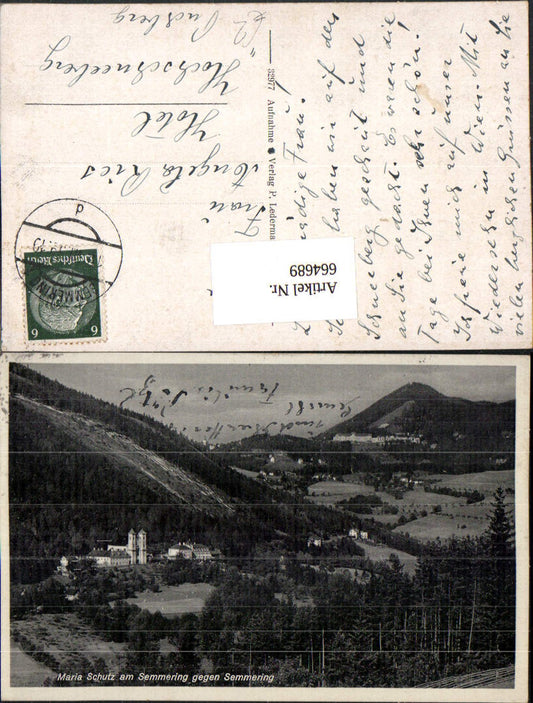 Frau
Angela Ries
Hotel
Hochschneeberg
Puchberg
32977 Aufnahme u. Verlag P. Lederma
Frau!
haben wir auf den
Schneeberg geschaut und
an Sie gedacht. Es waren die
Tage bei Ihnen sehr schön!
Ich freue mich auf unser
Wiedersehn in Wien. Mit
vielen herzlichen Grüssen an Sie
Artikel Nr.
664689
d
SEMMERING
Deutsches Reich
6 6
Maria Schutz am Semmering gegen Semmering